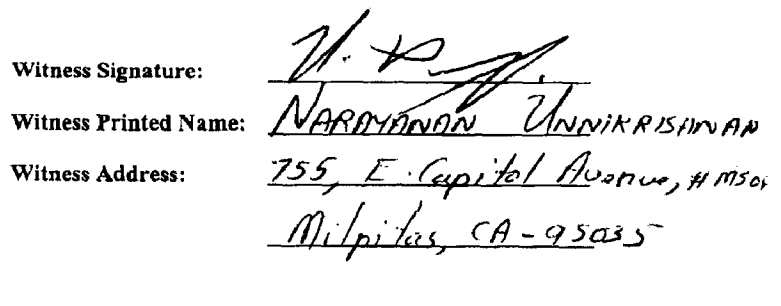 Witness Signature:
Witness Printed Name: NARAYANAN UNNIKRISHNAN
Witness Address: 755, E. Capitol Avenue, #
Milpitas, CA - 95035